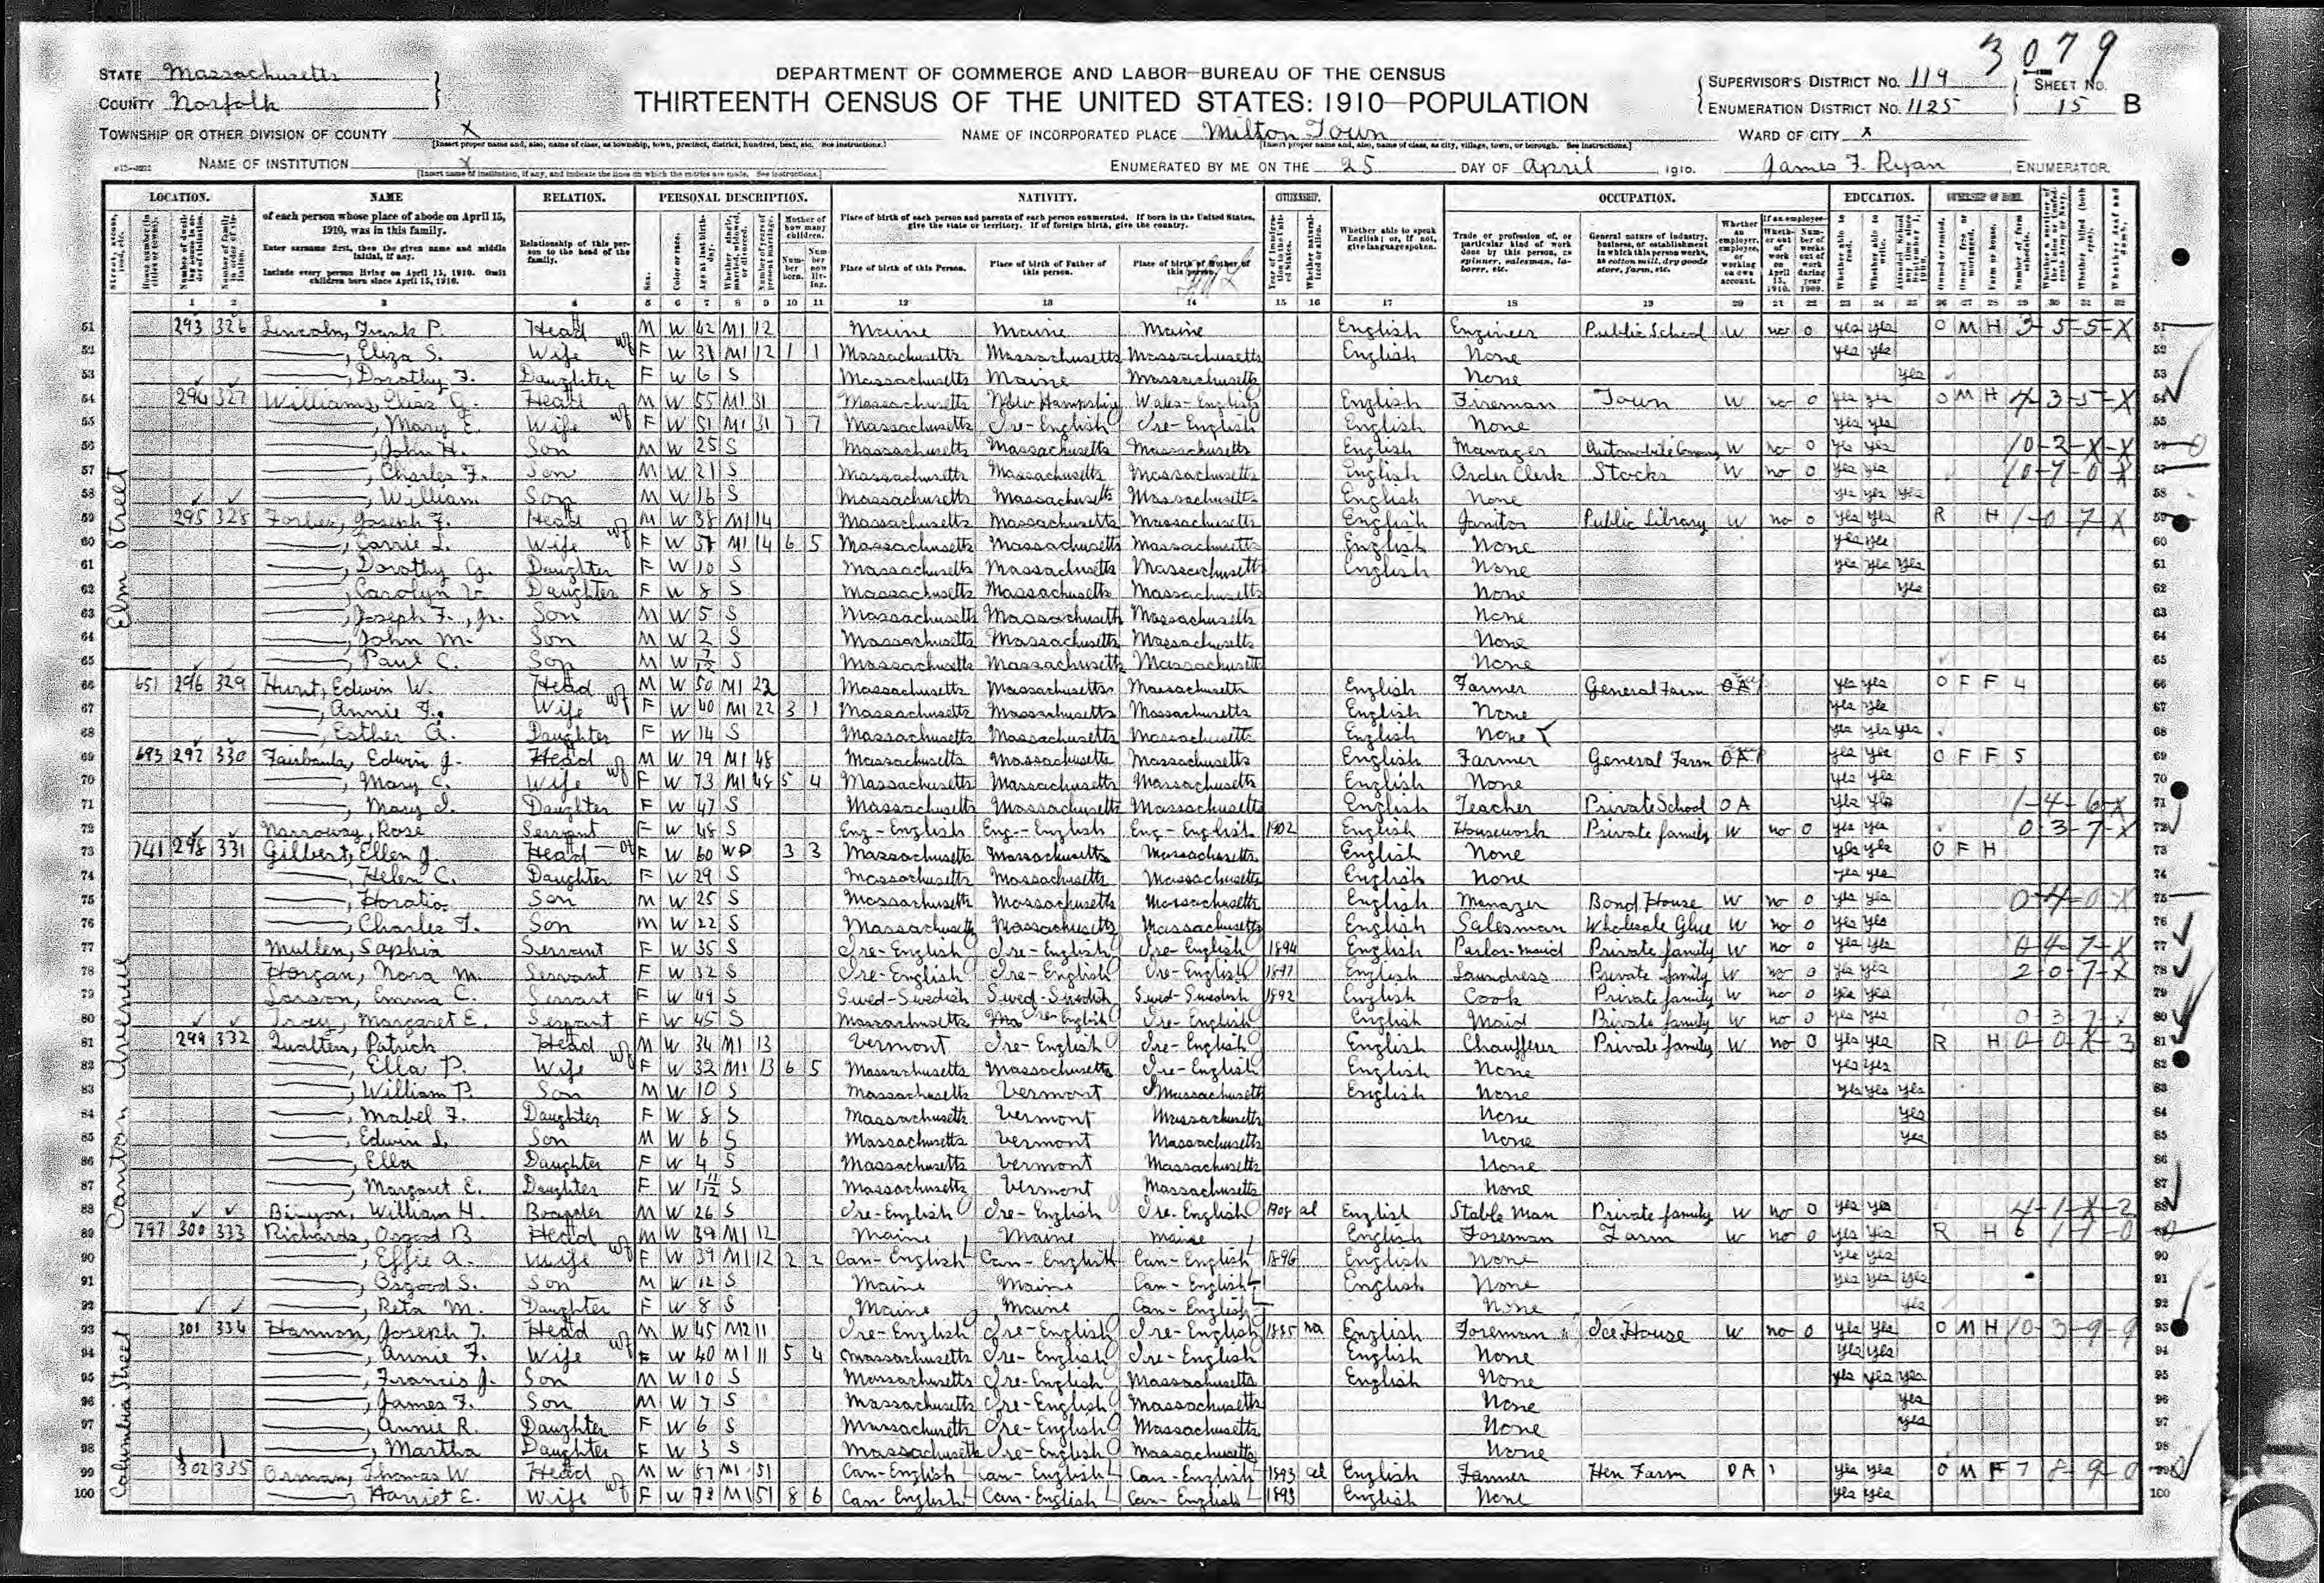 3079
STATE Massachusetts
COUNTY Norfolk
DEPARTMENT OF COMMERCE AND LABOR—BUREAU OF THE CENSUS
THIRTEENTH CENSUS OF THE UNITED STATES: 1910—POPULATION
SUPERVISOR'S DISTRICT NO. 119
ENUMERATION DISTRICT NO. 1125
SHEET NO. 15 B
TOWNSHIP OR OTHER DIVISION OF COUNTY X
NAME OF INCORPORATED PLACE Milton Town
WARD OF CITY X
NAME OF INSTITUTION X
ENUMERATED BY ME ON THE 25 DAY OF April, 1910. James F. Ryan, ENUMERATOR.
LOCATION. NAME RELATION. PERSONAL DESCRIPTION. NATIVITY. CITIZENSHIP. OCCUPATION. EDUCATION. OWNERSHIP OF HOME.
of each person whose place of abode on April 15, 1910, was in this family.
Enter surname first, then the given name and middle initial, if any.
Include every person living on April 15, 1910. Omit children born since April 15, 1910.
Relationship of this person to the head of the family.
Place of birth of each person and parents of each person enumerated. If born in the United States, give the state or territory. If of foreign birth, give the country.
Place of birth of this Person. Place of birth of Father of this person. Place of birth of Mother of this person.
Whether able to speak English; or, if not, give language spoken.
Trade or profession of, or particular kind of work done by this person, as spinner, salesman, laborer, etc.
General nature of industry, business, or establishment in which this person works, as cotton mill, dry goods store, farm, etc.
1 2 3 4 5 6 7 8 9 10 11 12 13 14 15 16 17 18 19 20 21 22 23 24 25 26 27 28 29 30 31 32
Elm Street
51 293 326 Lincoln, Frank P. Head M W 42 M1 12 Maine Maine Maine English Engineer Public School W no 0 yes yes O M H 3-5-5-X 51
52 —, Eliza S. Wife F W 38 M1 12 1 1 Massachusetts Massachusetts Massachusetts English None yes yes 52
53 —, Dorothy F. Daughter F W 6 S Massachusetts Maine Massachusetts None yes 53
54 294 327 Williams, G. Head M W 55 M1 31 Massachusetts New Hampshire Wales-English English Fireman Town W no 0 yes yes O M H 4-3-5-X 54
55 —, Mary E. Wife F W 51 M1 31 7 7 Massachusetts Ire-English Ire-English English None yes yes 55
56 —, John H. Son M W 25 S Massachusetts Massachusetts Massachusetts English Manager Automobile Company W no 0 yes yes 10-2-X-X 56
57 —, Charles F. Son M W 21 S Massachusetts Massachusetts Massachusetts English Order Clerk Stocks W no 0 yes yes 10-7-0-X 57
58 —, William Son M W 16 S Massachusetts Massachusetts Massachusetts English None yes yes yes 58
59 295 328 Forbes, Joseph F. Head M W 38 M1 14 Massachusetts Massachusetts Massachusetts English Janitor Public Library W no 0 yes yes R H 1-0-7-X 59
60 —, Carrie L. Wife F W M1 14 6 5 Massachusetts Massachusetts Massachusetts English None yes yes 60
61 —, Dorothy G. Daughter F W 10 S Massachusetts Massachusetts Massachusetts English None yes yes yes 61
62 —, Carolyn V. Daughter F W 8 S Massachusetts Massachusetts Massachusetts None yes 62
63 —, Joseph F., Jr. Son M W 5 S Massachusetts Massachusetts Massachusetts None 63
64 —, John M. Son M W 2 S Massachusetts Massachusetts Massachusetts None 64
65 —, Paul C. Son M W 7/12 S Massachusetts Massachusetts Massachusetts None 65
Canton Avenue
66 651 296 329 Hunt, Edwin W. Head M W 50 M1 22 Massachusetts Massachusetts Massachusetts English Farmer General Farm OA yes yes O F F 4 66
67 —, Annie F. Wife F W 40 M1 22 3 1 Massachusetts Massachusetts Massachusetts English None yes yes 67
68 —, Esther A. Daughter F W 14 S Massachusetts Massachusetts Massachusetts English None yes yes yes 68
69 693 297 330 Fairbanks, Edwin J. Head M W 79 M1 48 Massachusetts Massachusetts Massachusetts English Farmer General Farm OA yes yes O F F 5 69
70 —, Mary C. Wife F W 73 M1 48 5 4 Massachusetts Massachusetts Massachusetts English None yes yes 70
71 —, Mary I. Daughter F W 47 S Massachusetts Massachusetts Massachusetts English Teacher Private School OA yes yes 1-4-6-X 71
72 Narroway, Rose Servant F W 48 S Eng-English Eng-English Eng-English 1902 English Housework Private family W no 0 yes yes 0-3-7-X 72
73 741 298 331 Gilbert, Ellen J. Head F W 60 WD 3 3 Massachusetts Massachusetts Massachusetts English None yes yes O F H 73
74 —, Helen C. Daughter F W 29 S Massachusetts Massachusetts Massachusetts English None yes yes 74
75 —, Horatio Son M W 25 S Massachusetts Massachusetts Massachusetts English Manager Bond House W no 0 yes yes 0-4-0-X 75
76 —, Charles F. Son M W 22 S Massachusetts Massachusetts Massachusetts English Salesman Wholesale Glue W no 0 yes yes 76
77 Mullen, Saphia Servant F W 35 S Ire-English Ire-English Ire-English 1894 English Parlor-maid Private family W no 0 yes yes 0-4-7-X 77
78 Horgan, Nora M. Servant F W 32 S Ire-English Ire-English Ire-English 1897 English Laundress Private family W no 0 yes yes 2-0-7-X 78
79 Larson, Emma C. Servant F W 49 S Swed-Swedish Swed-Swedish Swed-Swedish 1892 English Cook Private family W no 0 yes yes 79
80 Margaret E. Servant F W 45 S Massachusetts Ire-English Ire-English English Maid Private family W no 0 yes yes 0-3-7-X 80
81 299 332 Qualters, Patrick Head M W 34 M1 13 Vermont Ire-English Ire-English English Chauffeur Private family W no 0 yes yes R H 0-0-X-3 81
82 —, Ella P. Wife F W 32 M1 13 6 5 Massachusetts Massachusetts Ire-English English None yes yes 82
83 —, William P. Son M W 10 S Massachusetts Vermont Massachusetts English None yes yes yes 83
84 —, Mabel F. Daughter F W 8 S Massachusetts Vermont Massachusetts None yes 84
85 —, Edwin L. Son M W 6 S Massachusetts Vermont Massachusetts None yes 85
86 —, Ella Daughter F W 4 S Massachusetts Vermont Massachusetts None 86
87 —, Margaret E. Daughter F W 1 11/12 S Massachusetts Vermont Massachusetts None 87
88 Binyon, William H. Boarder M W 26 S Ire-English Ire-English Ire-English 1908 al English Stable Man Private family W no 0 yes yes 4-1-X-2 88
89 797 300 333 Richards, Osgood B. Head M W 39 M1 12 Maine Maine Maine English Foreman Farm W no 0 yes yes R H 6 1-7-0 89
90 —, Effie A. Wife F W 39 M1 12 2 2 Can-English Can-English Can-English 1896 English None yes yes 90
91 —, Osgood S. Son M W 12 S Maine Maine Can-English English None yes yes yes 91
92 —, Reta M. Daughter F W 8 S Maine Maine Can-English None yes 92
Columbia Street
93 301 334 Hannon, Joseph J. Head M W 45 M2 11 Ire-English Ire-English Ire-English 1885 na English Foreman Ice House W no 0 yes yes O M H 10-3-9-9 93
94 —, Annie F. Wife F W 40 M1 11 5 4 Massachusetts Ire-English Ire-English English None yes yes 94
95 —, Francis J. Son M W 10 S Massachusetts Ire-English Massachusetts English None yes yes yes 95
96 —, James F. Son M W 7 S Massachusetts Ire-English Massachusetts None yes 96
97 —, Annie R. Daughter F W 6 S Massachusetts Ire-English Massachusetts None yes 97
98 —, Martha Daughter F W 3 S Massachusetts Ire-English Massachusetts None 98
99 302 335 Orman, Thomas W. Head M W M1 51 Can-English Can-English Can-English 1893 al English Farmer Hen Farm OA yes yes O M F 7 8-9-0 99
100 —, Harriet E. Wife F W M1 51 8 6 Can-English Can-English Can-English 1893 English None yes yes 100